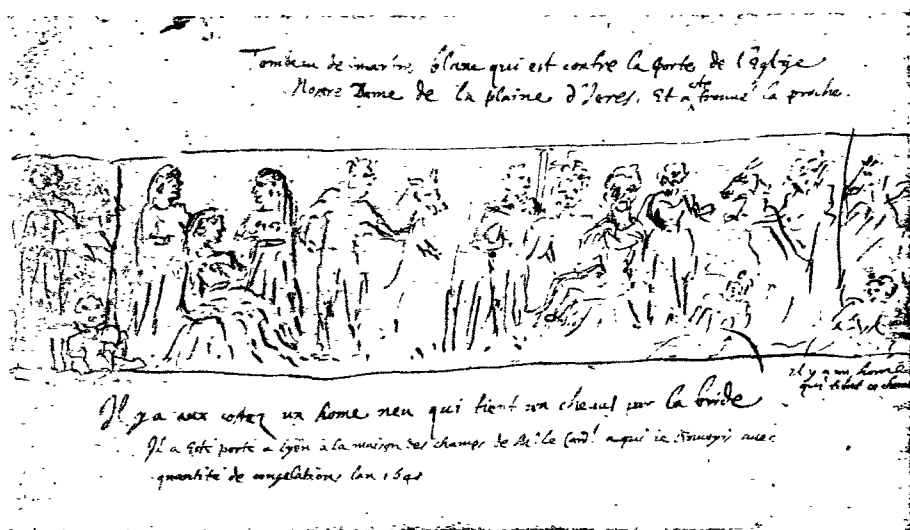 Tombeau de marbre blanc qui est contre la porte de l'Eglise
Nostre Dame de la plaine d'Ieres. Et a esté trouué la proche.
il y a un home
qui tient ce cheual
Il y a aux costez un home neu qui tient un cheual par la bride
Il a esté porté a Lyon à la maison des champs de Mr le Card.l a qui ie l'enuoyis auec
quantité de congelations lan 164